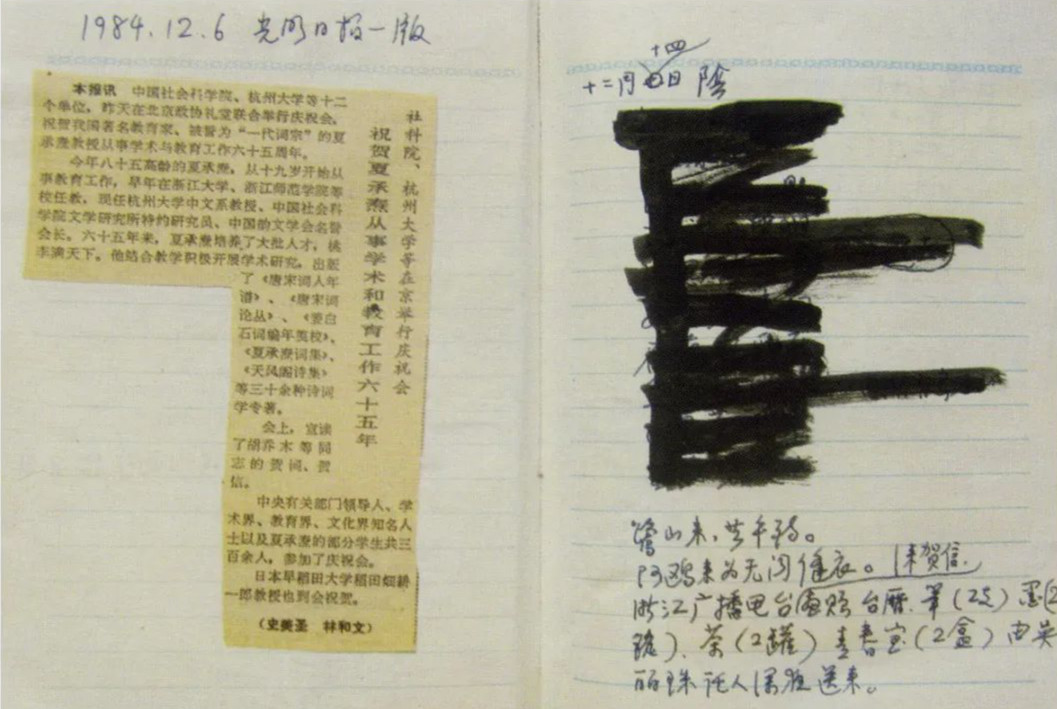 1984.12.6 光明日报一版
社科院、杭州大学等在京举行庆祝会
祝贺夏承焘从事学术和教育工作六十五年
本报讯 中国社会科学院、杭州大学等十二
个单位，昨天在北京政协礼堂联合举行庆祝会，
祝贺我国著名教育家、被誉为“一代词宗”的夏
承焘教授从事学术与教育工作六十五周年。
今年八十五高龄的夏承焘，从十九岁开始从
事教育工作，早年在浙江大学、浙江师范学院等
校任教，现任杭州大学中文系教授、中国社会科
学院文学研究所特约研究员、中国韵文学会名誉
会长。六十五年来，夏承焘培养了大批人才，桃
李满天下。他结合教学积极开展学术研究，出版
了《唐宋词人年
谱》、《唐宋词
论丛》、《姜白
石词编年笺校》、
《夏承焘词集》、
《天风阁诗集》
等三十余种诗词
学专著。
会上，宣读
了胡乔木等同
志的贺词、贺
信。
中央有关部门领导人、学
术界、教育界、文化界知名人
士以及夏承焘的部分学生共三
百余人，参加了庆祝会。
日本早稻田大学稻田畊耕
一郎教授也到会祝贺。
（史美圣 林和文）
十四
十二月 日 阴
鹭山来，共午 。
阿鸥来为无闻 衣。 来贺信
浙江广播电台 赠台历、笔（2支）墨（2
瓶）、茶（2罐）青春宝（2盒）由吴
丽珠托人 送来。